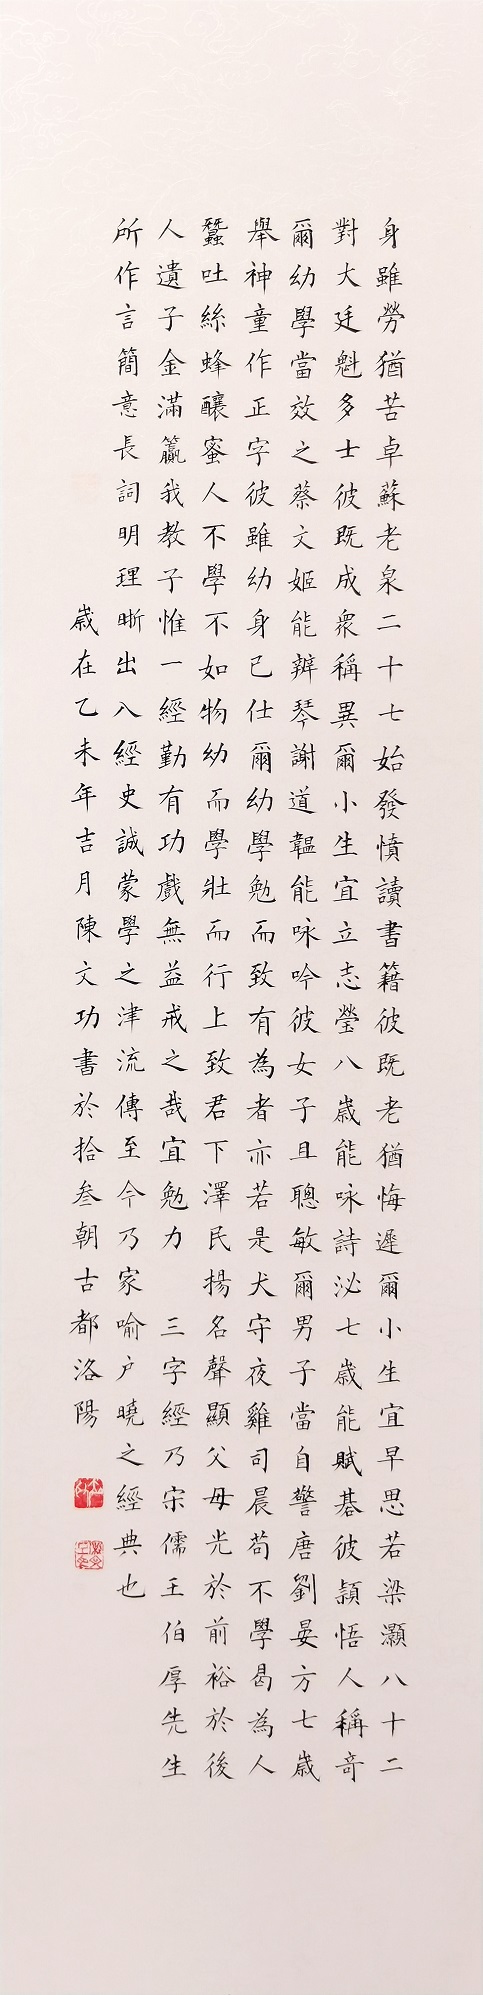 身雖勞猶苦卓蘇老泉二十七始發憤讀書籍彼既老猶悔遲爾小生宜早思若梁灝八十二
對大廷魁多士彼既成眾稱異爾小生宜立志瑩八歲能咏詩泌七歲能賦碁彼穎悟人稱奇
爾幼學當效之蔡文姬能辨琴謝道韞能咏吟彼女子且聰敏爾男子當自警唐劉晏方七歲
舉神童作正字彼雖幼身已仕爾幼學勉而致有為者亦若是犬守夜雞司晨苟不學曷為人
蠶吐絲蜂釀蜜人不學不如物幼而學壯而行上致君下澤民揚名聲顯父母光於前裕於後
人遺子金滿籯我教子惟一經勤有功戲無益戒之哉宜勉力 三字經乃宋儒王伯厚先生
所作言簡意長詞明理晰出入經史誠蒙學之津流傳至今乃家喻户曉之經典也
歲在乙未年吉月陳文功書於拾叁朝古都洛陽